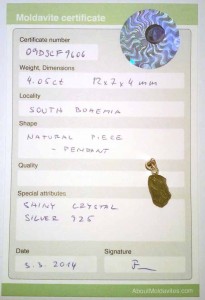 Moldavite certificate
Certificate number
09DSCF9606
Weight, Dimensions
4.05ct 12x7x4mm
Locality
SOUTH BOHEMIA
Shape
NATURAL PIECE
- PENDANT
Quality
Special attributes:
SHINY CRYSTAL
SILVER 925
Date
Signature
3.3.2014
AboutMoldavites.com